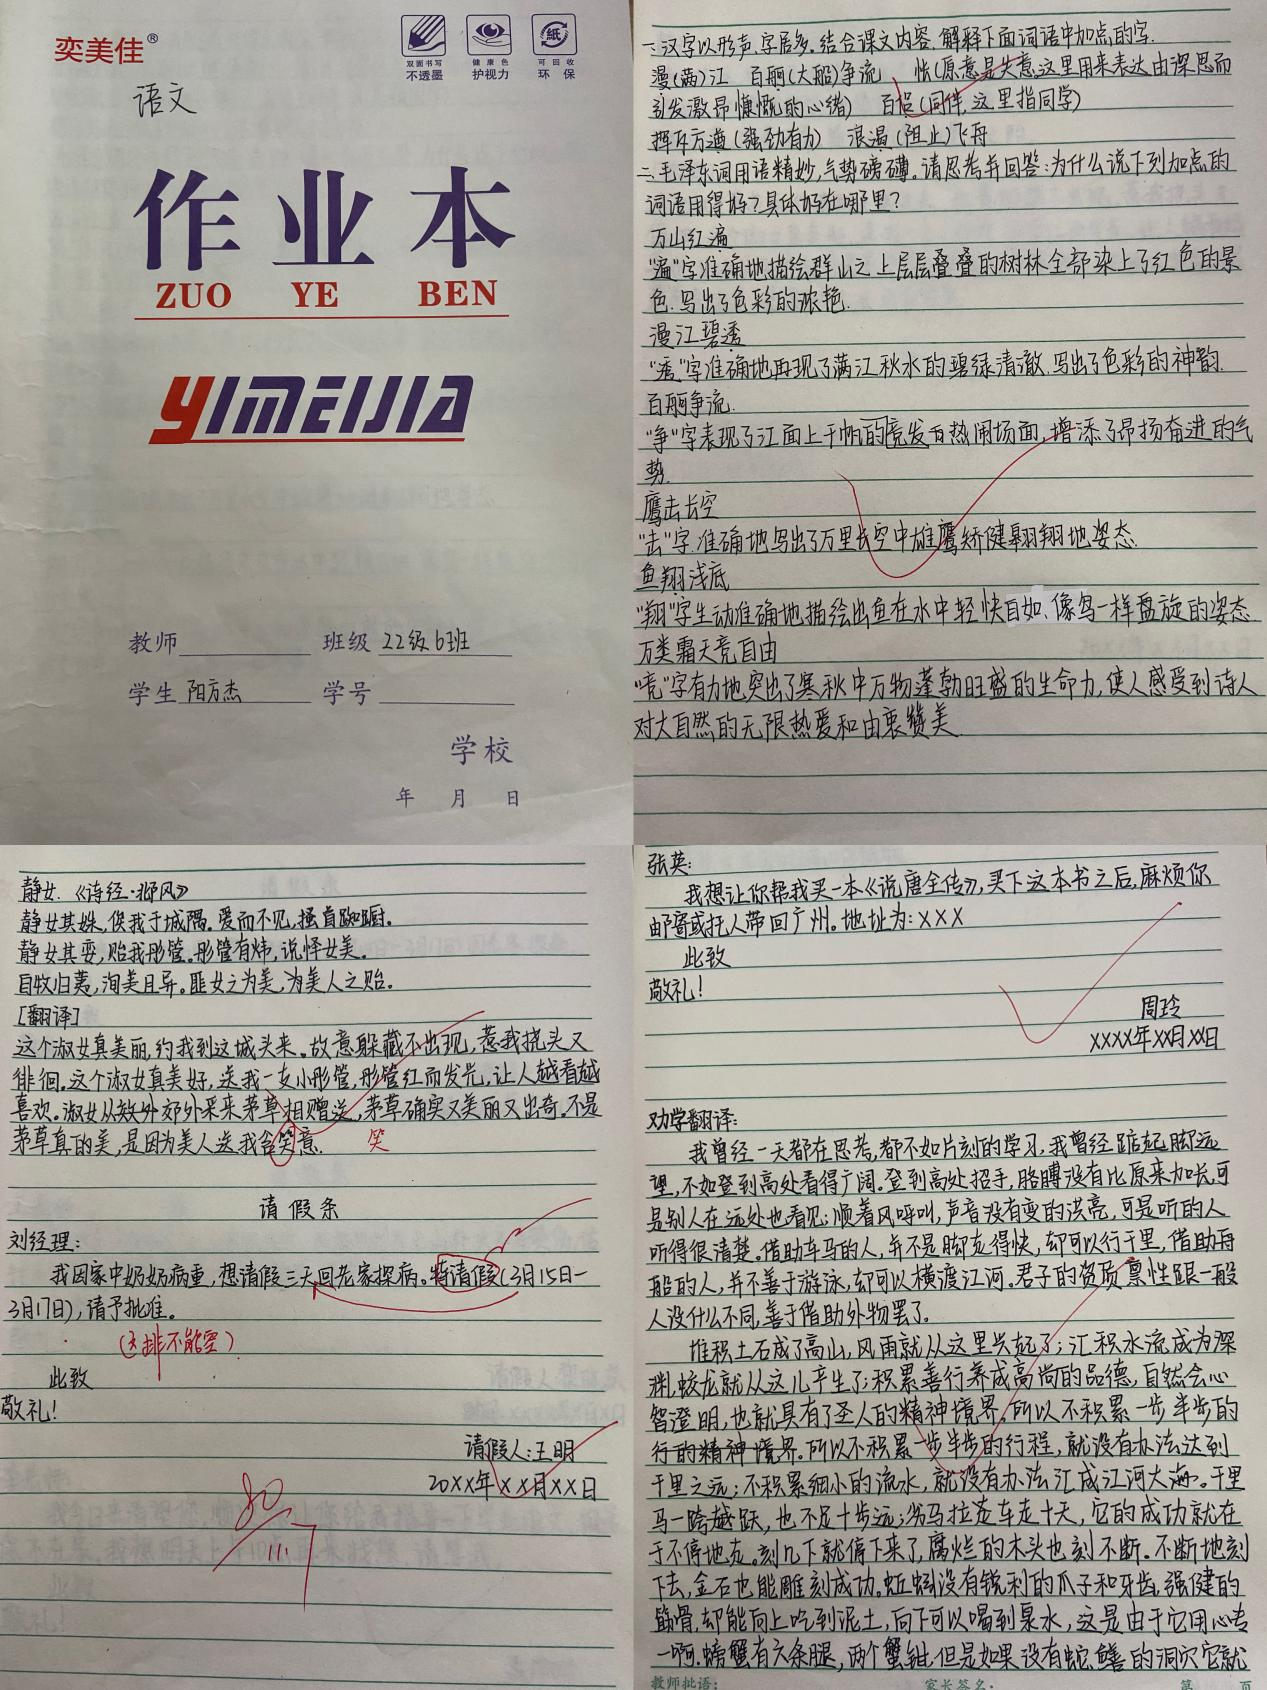 奕美佳®
双面书写
不透墨
健康色
护视力
紙
可回收
环保
语文
作业本
ZUO YE BEN
YIMEIJIA
教师 班级 22级6班
学生 阳方杰 学号
学校
年 月 日
一.汉字以形声字居多.结合课文内容.解释下面词语中加点的字.
漫(满)江 百舸(大船)争流 怅(原意是失意,这里用来表达由深思而
引发激昂慷慨的心绪) 百侣(同伴,这里指同学)
挥斥方遒(强劲有力) 浪遏(阻止)飞舟
二.毛泽东词用语精妙,气势磅礴。请思考并回答:为什么说下列加点的
词语用得好?具体好在哪里?
万山红遍
“遍”字准确地描绘群山之上层层叠叠的树林全部染上了红色的景
色.写出了色彩的浓艳.
漫江碧透
“透”字准确地再现了满江秋水的碧绿清澈.写出了色彩的神韵.
百舸争流.
“争”字表现了江面上千帆的竞发百热闹场面,增添了昂扬奋进的气
势.
鹰击长空
“击”字.准确地写出了万里长空中雄鹰矫健翱翔地姿态.
鱼翔浅底
“翔”字生动准确地描绘出鱼在水中轻快自如、像鸟一样盘旋的姿态.
万类霜天竞自由
“竞”字有力地突出了寒秋中万物蓬勃旺盛的生命力,使人感受到诗人
对大自然的无限热爱和由衷赞美.
静女.《诗经·邶风》
静女其姝,俟我于城隅。爱而不见,搔首踟蹰。
静女其娈,贻我彤管。彤管有炜,说怿女美。
自牧归荑,洵美且异。匪女之为美,为美人之贻。
[翻译]
这个淑女真美丽,约我到这城头来。故意躲藏不出现,惹我挠头又
徘徊。这个淑女真美好,送我一支小彤管,彤管红而发光,让人越看越
喜欢。淑女从效外郊外采来茅草相赠送,茅草确实又美丽又出奇。不是
茅草真的美,是因为美人送我含笑意.
笑
请假条
刘经理:
我因家中奶奶病重,想请假三天回老家探病。特请假(3月15日一
3月17日),请予批准。
(这排不能空)
此致
敬礼!
请假人:王明
20XX年XX月XX日
80
11.7
张英:
我想让你帮我买一本《说唐全传》,买下这本书之后,麻烦你
邮寄或托人带回广州。地址为:XXX
此致
敬礼!
周玲
XXXX年XX月XX日
劝学翻译:
我曾经一天都在思考,都不如片刻的学习,我曾经踮起脚远
望,不如登到高处看得广阔。登到高处招手,胳膊没有比原来加长,可
是别人在远处也看见;顺着风呼叫,声音没有变的洪亮,可是听的人
听得很清楚。借助车马的人,并不是脚走得快,却可以行千里,借助舟
船的人,并不善于游泳,却可以横渡江河。君子的资质禀性跟一般
人没什么不同,善于借助外物罢了。
堆积土石成了高山,风雨就从这里兴起了;汇积水流成为深
渊,蛟龙就从这儿产生了;积累善行养成高尚的品德,自然会心
智澄明,也就具有了圣人的精神境界.所以不积累一步半步的
行的精神境界.所以不积累一步半步的行程,就没有办法达到
千里之远;不积累细小的流水,就没有办法汇成江河大海。千里
马一跨越跃,也不足十步远;劣马拉走车走十天,它的成功就在
于不停地走。刻几下就停下来了,腐烂的木头也刻不断。不断地刻
下去,金石也能雕刻成功。蚯蚓没有锐利的爪子和牙齿,强健的
筋骨,却能向上吃到泥土,向下可以喝到泉水,这是由于它用心专
一啊.螃蟹有六条腿,两个蟹钳,但是如果没有蛇.鳝的洞穴它就
教师批语: 家长签名: 第 页